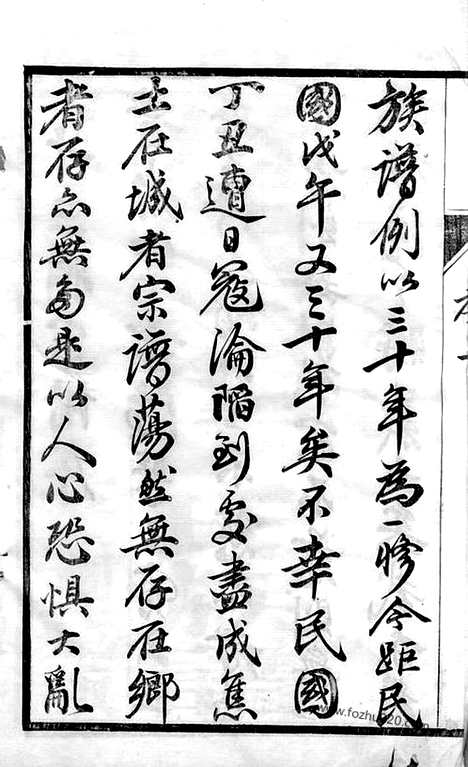 族譜例以三十年為一修今距民
國戊午又三十年矣不幸民國
丁丑遭日寇淪陷到處盡成焦
土在城者宗譜蕩然無存在鄉
者存亦無多是以人心恐懼大亂
www.fozhu920.com